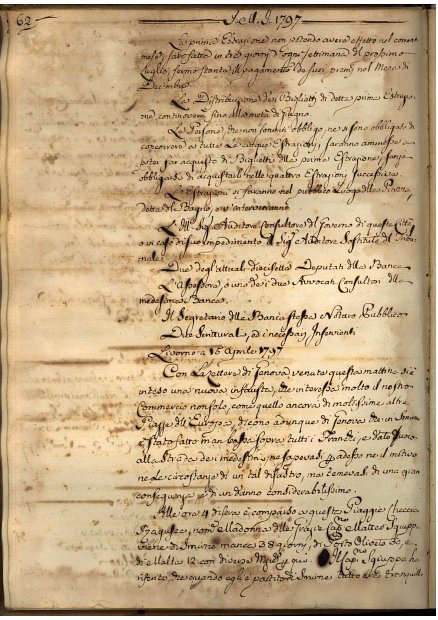 62
1797
La prima Estrazione non potendo avere effetto nel corrente
mese, sarà fatta in tre giorni d'ogni settimana del prossimo
Luglio, fermo stante il pagamento dei suoi premj nel Mese di
Decembre.
La Distribuzione dei Biglietti di detta prima Estrazio
ne continoverà fino alla metà di Giugno.
Le Persone, che non sono in obbligo, ne si sono obbligate di
concorrere a tutte le cinque Estrazioni, saranno ammesse a
poter far acquisto di Biglietti della prima Estrazione, senza
obbligarsi di acquistarli nelle quattro Estrazioni successive.
Le Estrazioni si faranno nel pubblico Luogo della Piazza
detta del Bagno, e v'interverranno
L'Ill. Sig. Auditore Consultore del Governo di questa Città
o in caso di suo impedimento il Sig. Auditore Sostituto del Tribu
nale
Due degl'attuali Diecisette Deputati della Banca
L'Assessore o uno dei due Avvocati Consultori della
medesima Banca.
Il Segretario della Banca stessa Notaro Pubblico
Due Scritturali, ed i necessarj Inservienti
Livorno a 15 Aprile 1797
Con Lettere di Genova venute questa mattina si è
inteso una nuova infausta, che interessa molto il nostro
Commercio non solo, come quello ancora di moltissime altre
Piazze dell'Europa, dicono adunque di Genova che in Smirne
è stato fatto man bassa sopra tutti i Franchi, e dato fuoco
alla Strada dei medesimi, ne sapevasi adesso ne il motivo
ne le circostanze di un tal disastro, ma temevasi di una gran
conseguenza e di un danno considerabilissimo.
Alle ore 4 di sera è comparso a questa Spiaggia
nom.
viene di Smirne manca 38 giorni, di Porto
e di Malta 12 con diverse
riferito, che quando egli è partito di Smirne tutto era tranquill